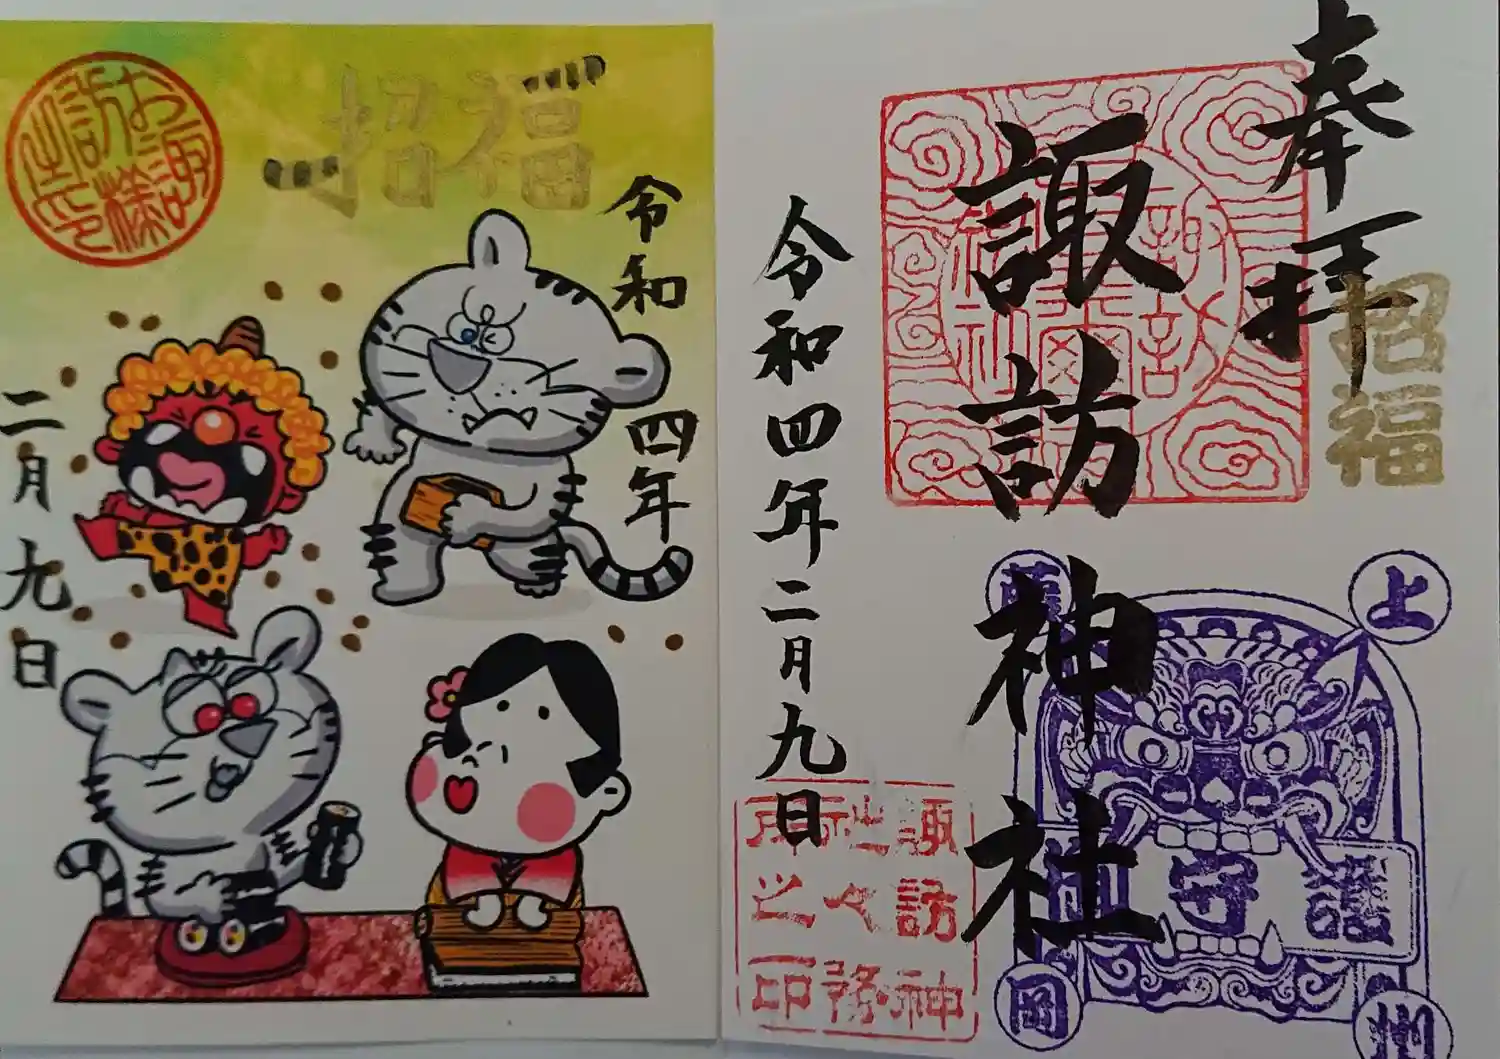 奉拝
招福
諏訪神社
令和四年二月九日
上州
藤岡
守護
諏訪神
社々務
所之印
招福
お諏訪様之印
令和四年
二月九日